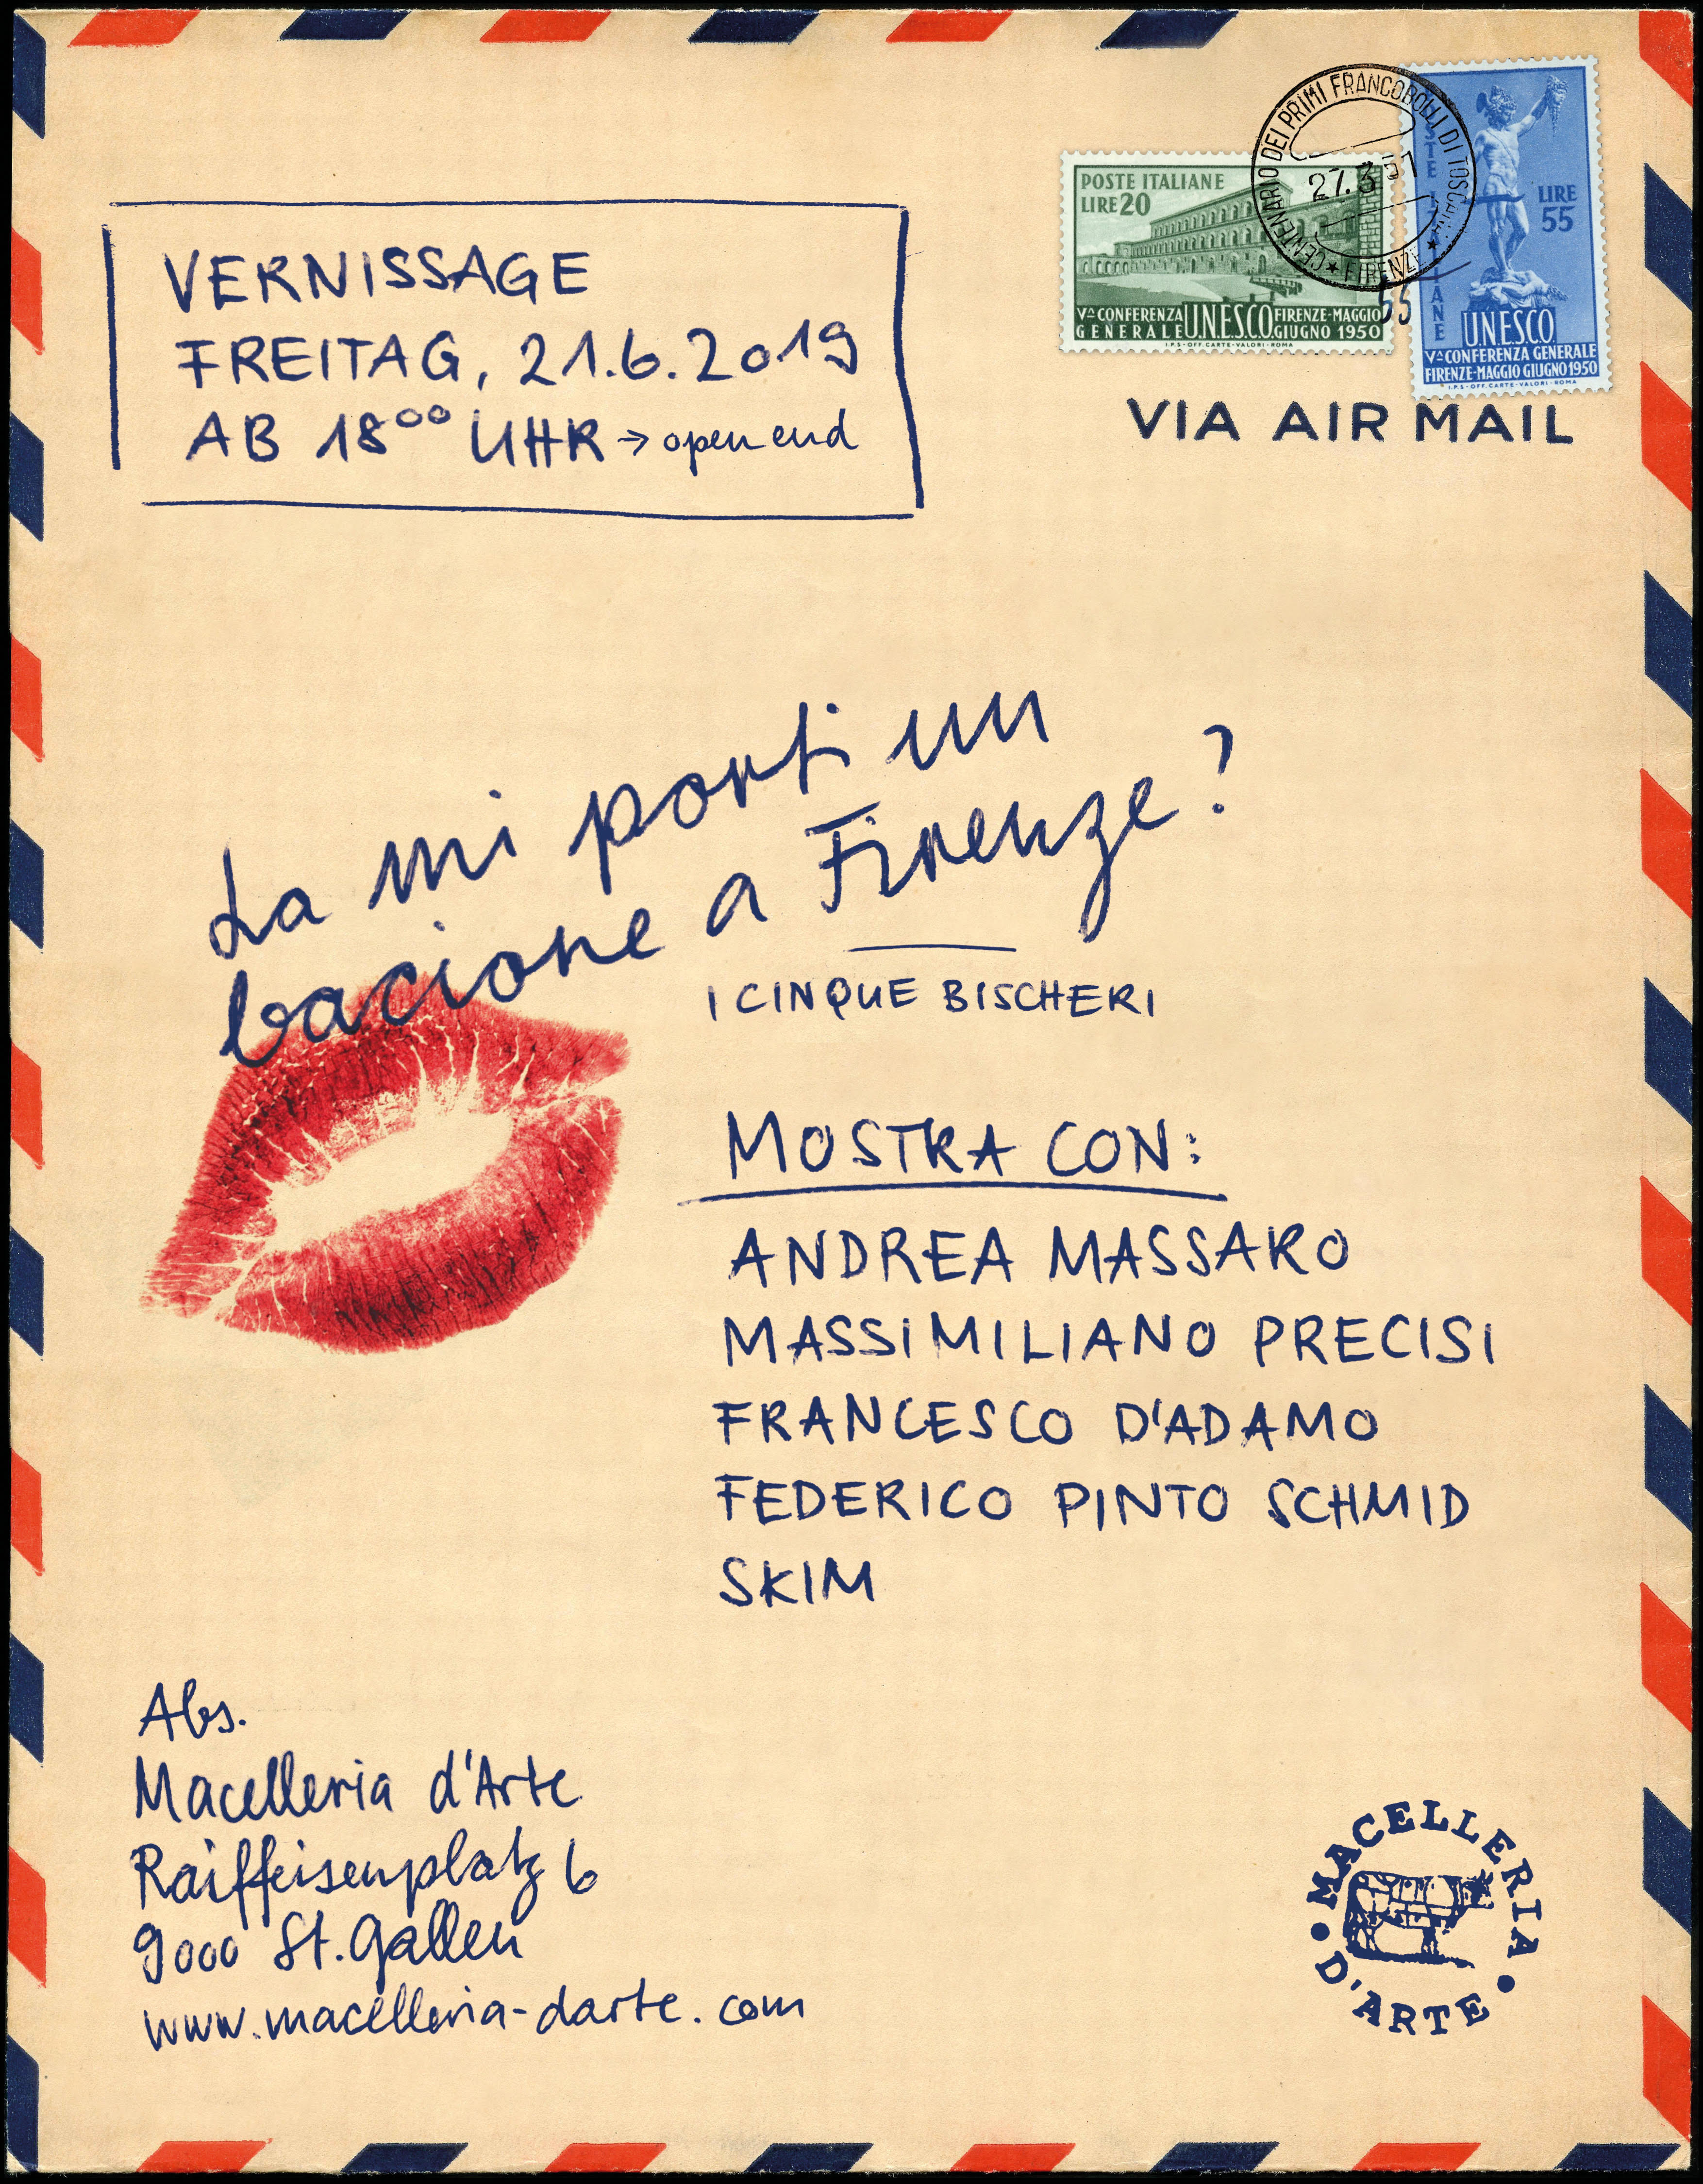 VERNISSAGE
FREITAG, 21.6.2019
AB 18⁰⁰ UHR → open end
POSTE ITALIANE
LIRE 20
Vª CONFERENZA GENERALE U.N.E.S.C.O. FIRENZE-MAGGIO GIUGNO 1950
I.P.S-OFF.CARTE-VALORI-ROMA
CENTENARIO DEI PRIMI FRANCOBOLLI DI TOSCANA
27.3.51
★ FIRENZE ★
POSTE ITALIANE
LIRE
55
U.N.E.S.C.O.
Vª CONFERENZA GENERALE
FIRENZE-MAGGIO GIUGNO 1950
I.P.S-OFF.CARTE-VALORI-ROMA
VIA AIR MAIL
La mi porti un
bacione a Firenze?
I CINQUE BISCHERI
MOSTRA CON:
ANDREA MASSARO
MASSIMILIANO PRECISI
FRANCESCO D'ADAMO
FEDERICO PINTO SCHMID
SKIM
Abs.
Macelleria d'Arte
Raiffeisenplatz 6
9000 St. Gallen
www.macelleria-darte.com
MACELLERIA
D'ARTE